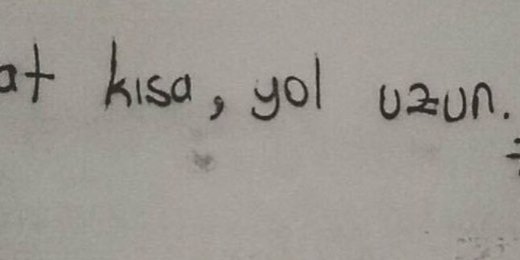 at kısa, yol uzun.